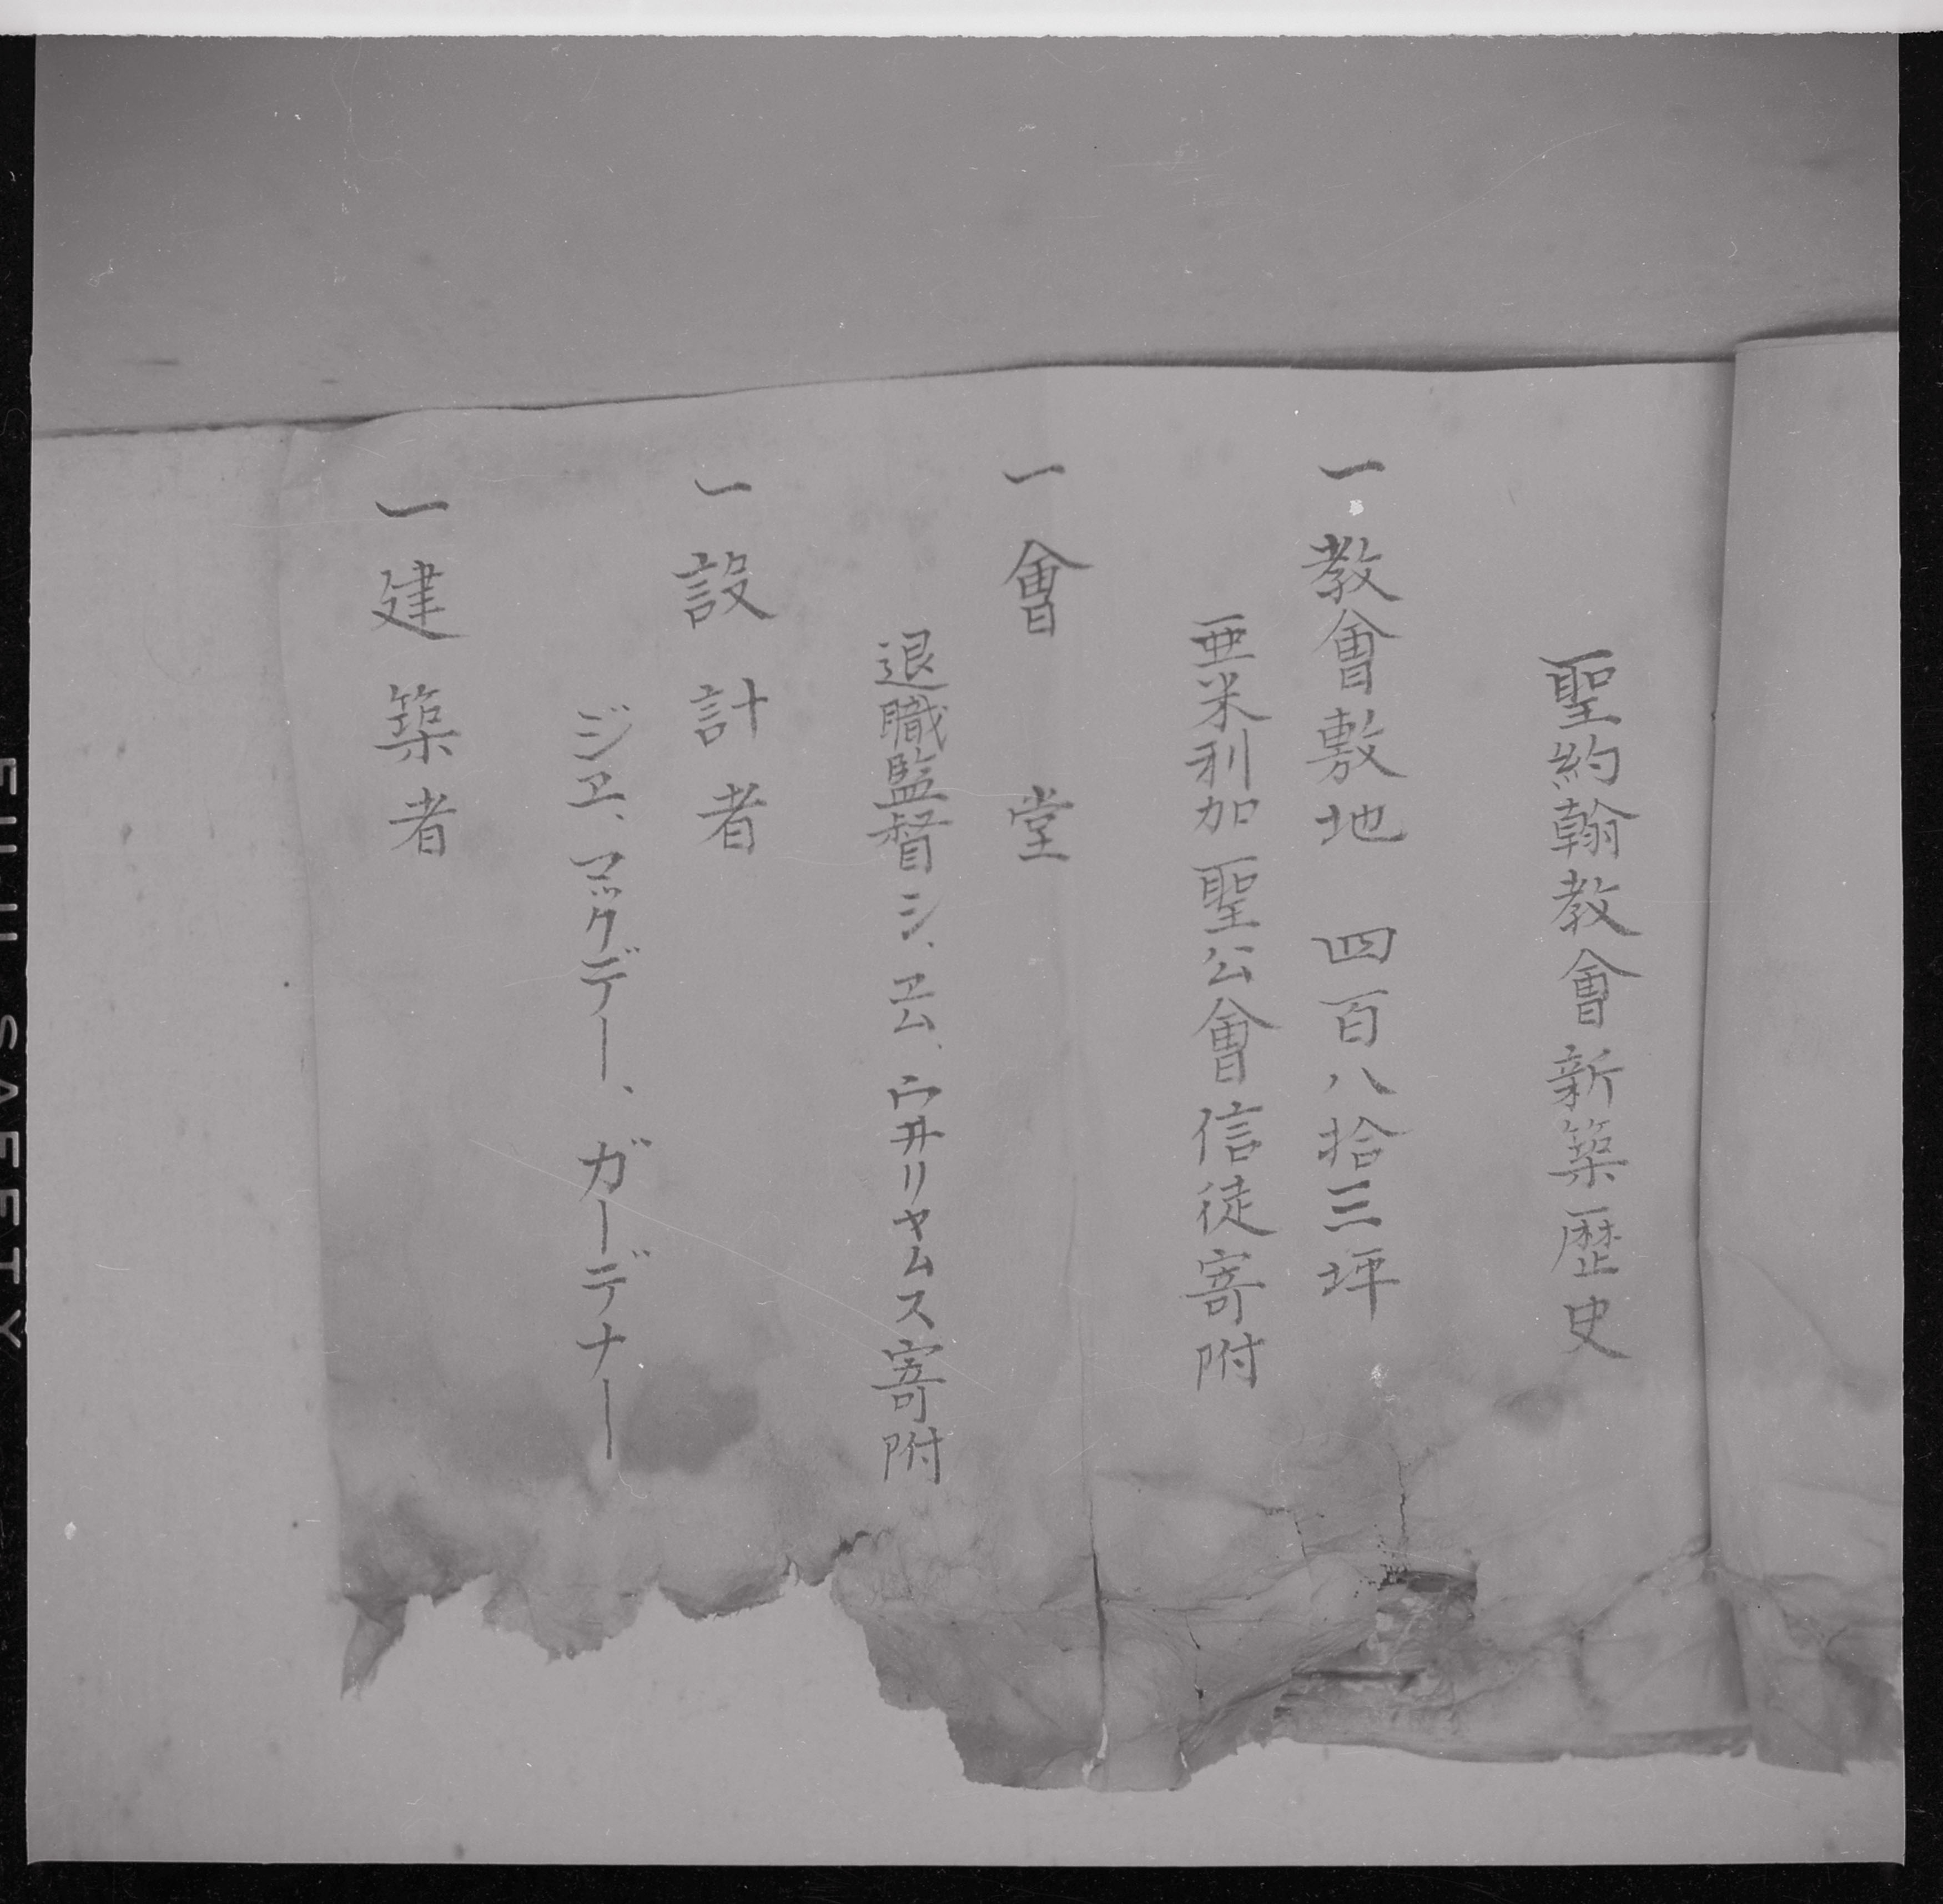 聖約翰教會新築歴史
一教會敷地 四百八拾三坪
亜米利加聖公會信徒寄附
一會堂
退職監督シ、ヱム、ウ井リヤムス寄附
一設計者
ジヱ、マックデー、ガーデナー
一建築者